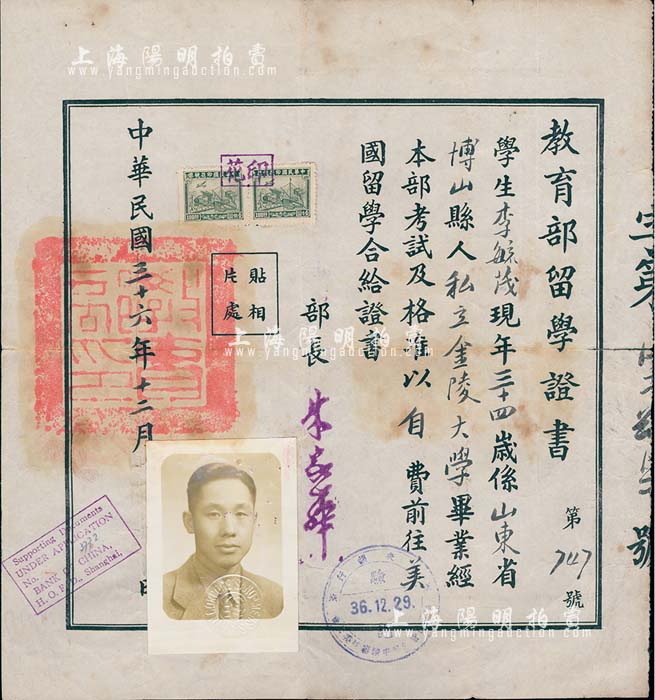 上海陽明拍賣
www.yangmingauction.com
教育部留學證書
第747號
學生李毓茂現年三十四歲係山東省
博山縣人私立金陵大學畢業經
本部考試及格准以自費前往美
國留學合給證書
部長 朱家驊
貼相
片處
印花
中華民國三十六年十二月
日
Supporting Documents
UNDER APPLICATION
No.
BANK OF CHINA,
H. O. F. D., Shanghai,
36.12.29.
驗
上海陽明拍賣
www.yangmingauction.com
上海陽明拍賣
www.yangmingauction.com